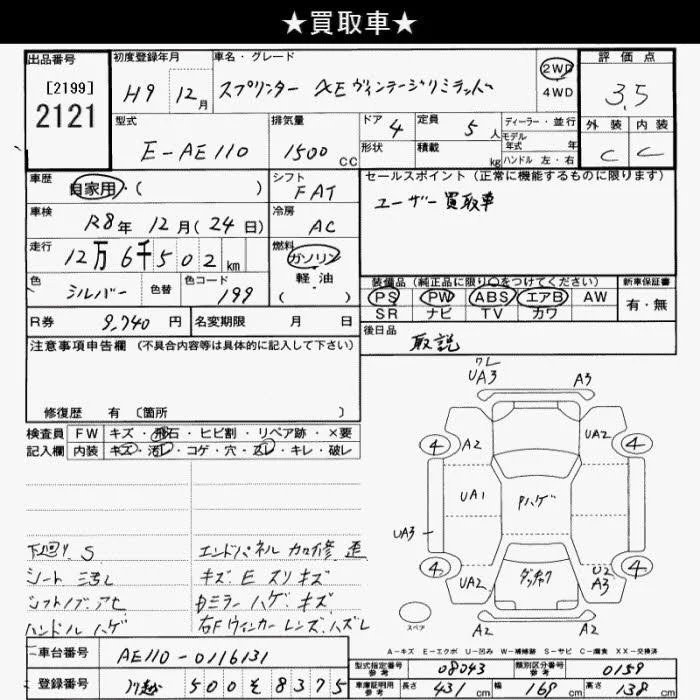 ★買取車★
出品番号
[2199]
2121
初度登録年月
H9 12月
車名・グレード
スプリンター XE ヴィンテージリミテッド
2WD
4WD
評価点
3.5
外装 内装
C C
型式
E-AE110
排気量
1500 CC
ドア 4
定員 5 人
ディーラー・並行
モデル年式 年
形状
積載 kg
ハンドル 左・右
車歴
自家用・( )
シフト
FAT
セールスポイント (正常に機能するものに限ります)
ユーザー買取車
車検
R8年 12月 (24日)
冷房
AC
走行
12万6千502km
燃料
ガソリン
軽・油
( )
色
シルバー
色替
色コード
199
装備品 (純正品に限り○をつけてください)
PS PW ABS エアB AW
SR ナビ TV カワ
新車保証書
有・無
R券 9,740 円
名変期限 月 日
後日品
取説
注意事項申告欄 (不具合内容等は具体的に記入して下さい)
修復歴 有 〔箇所 〕
検査員記入欄
FW キズ・飛石・ヒビ割・リペア跡・×要
内装 キズ・汚レ・コゲ・穴・スレ・キレ・破レ
下廻り S
シート ヨゴレ
シフトノブ アセ
ハンドル ハゲ
エンドパネル カロ修 歪
キズ、E スリキズ
Dミラー ハゲ キズ
右F ウィンカーレンズ ハズレ
ワレ
UA3 A3
4 A2 UA2 4
UA1 Pハゲ
UA3
4 UA2 U2 A3 4
A2 A2
スペア
A-キズ E-エクボ U-凹み W-補修跡 S-サビ C-腐食 XX-交換済
車台番号 AE110-0116131
登録番号 川越 500 そ 8375
型式指定番号 参考 08043
類別区分番号 参考 0159
車庫証明用 参考 長さ 431 cm 幅 169 cm 高さ 138 cm